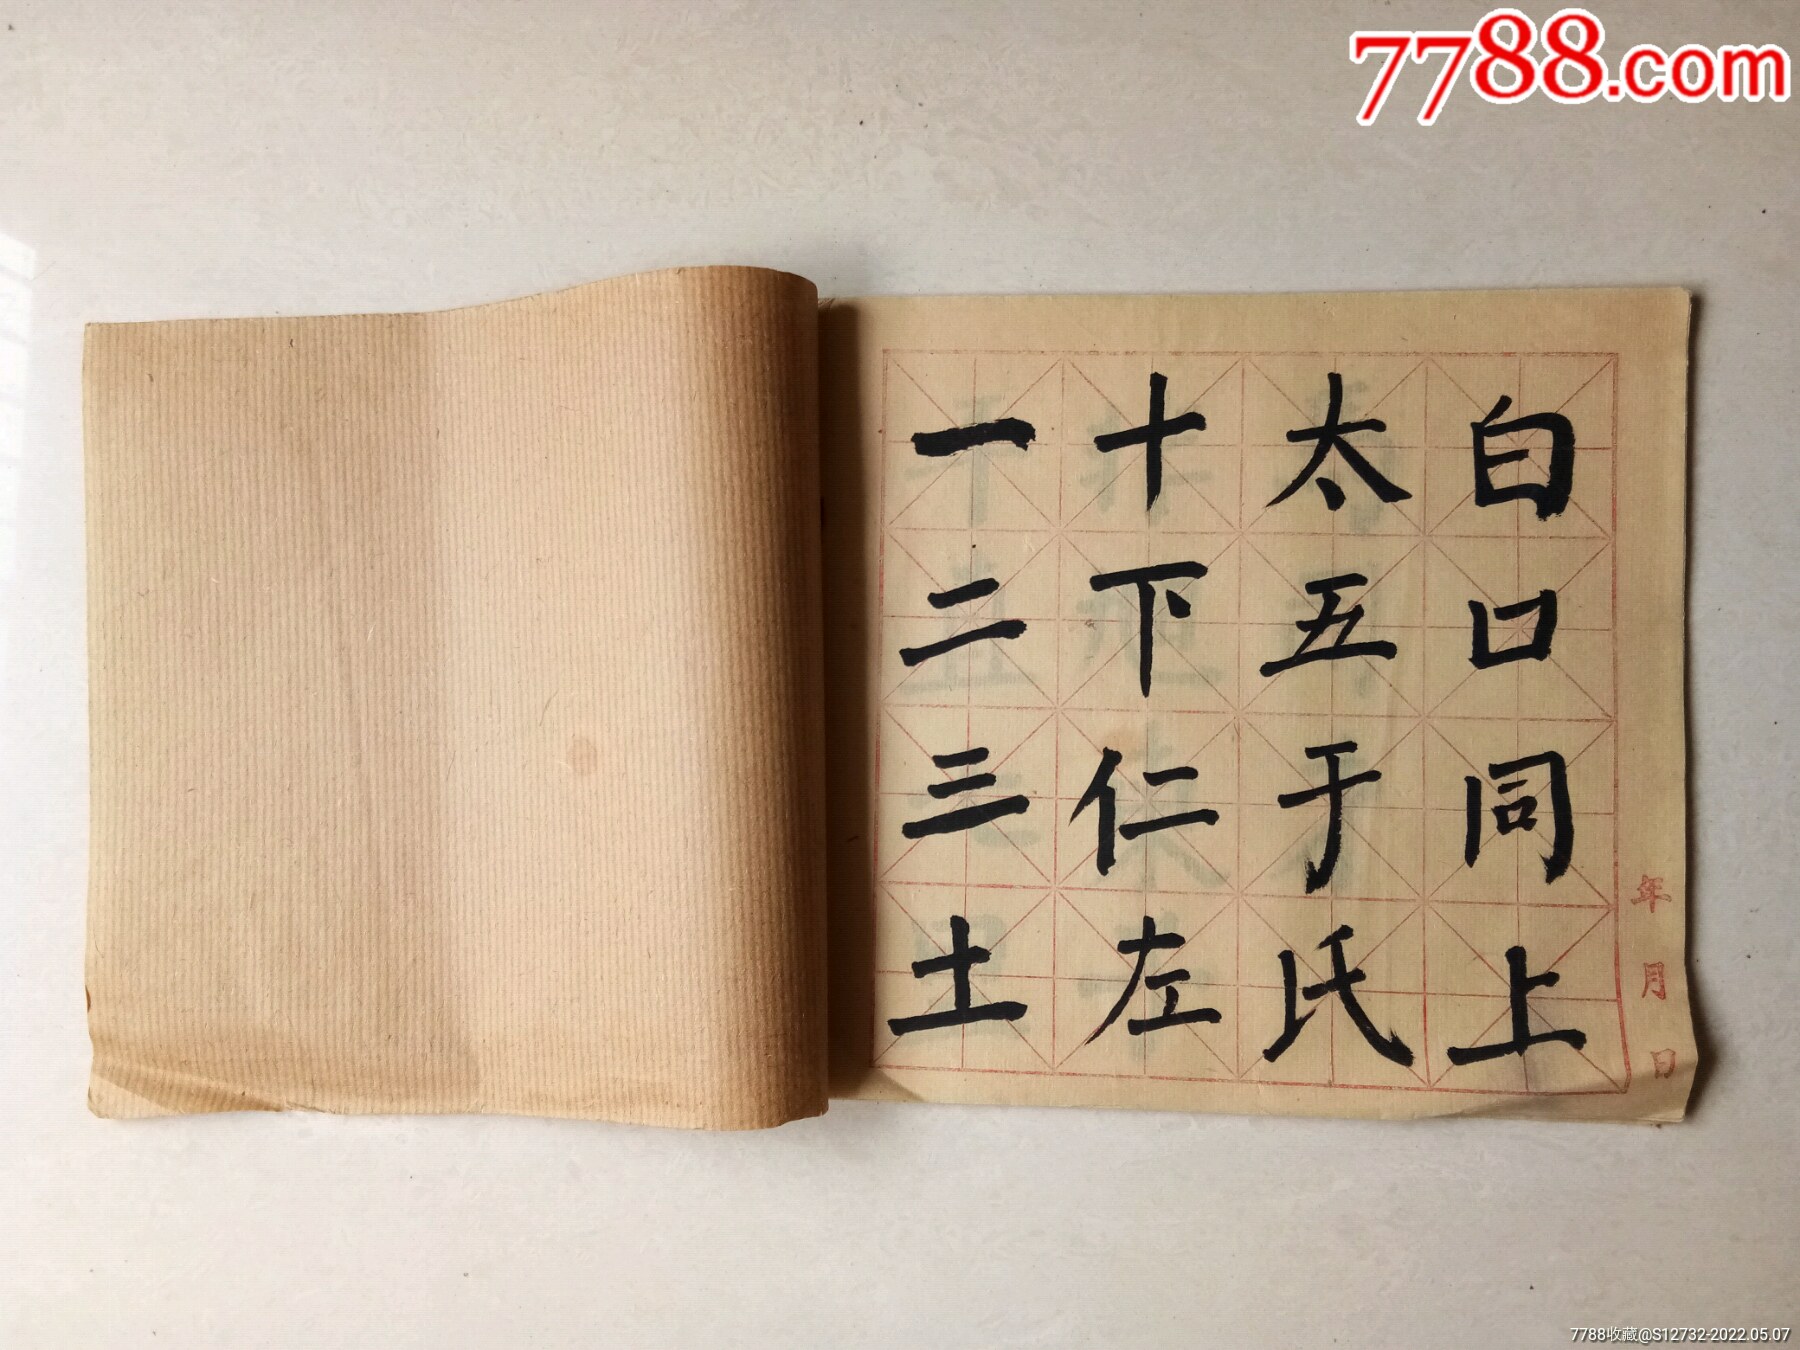 7788.com
一二三土
十下仁左
太五于氏
白口同上
年月日
7788收藏@S12732-2022.05.07